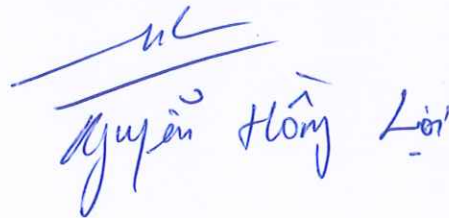 Nguyễn Hồng Lợi